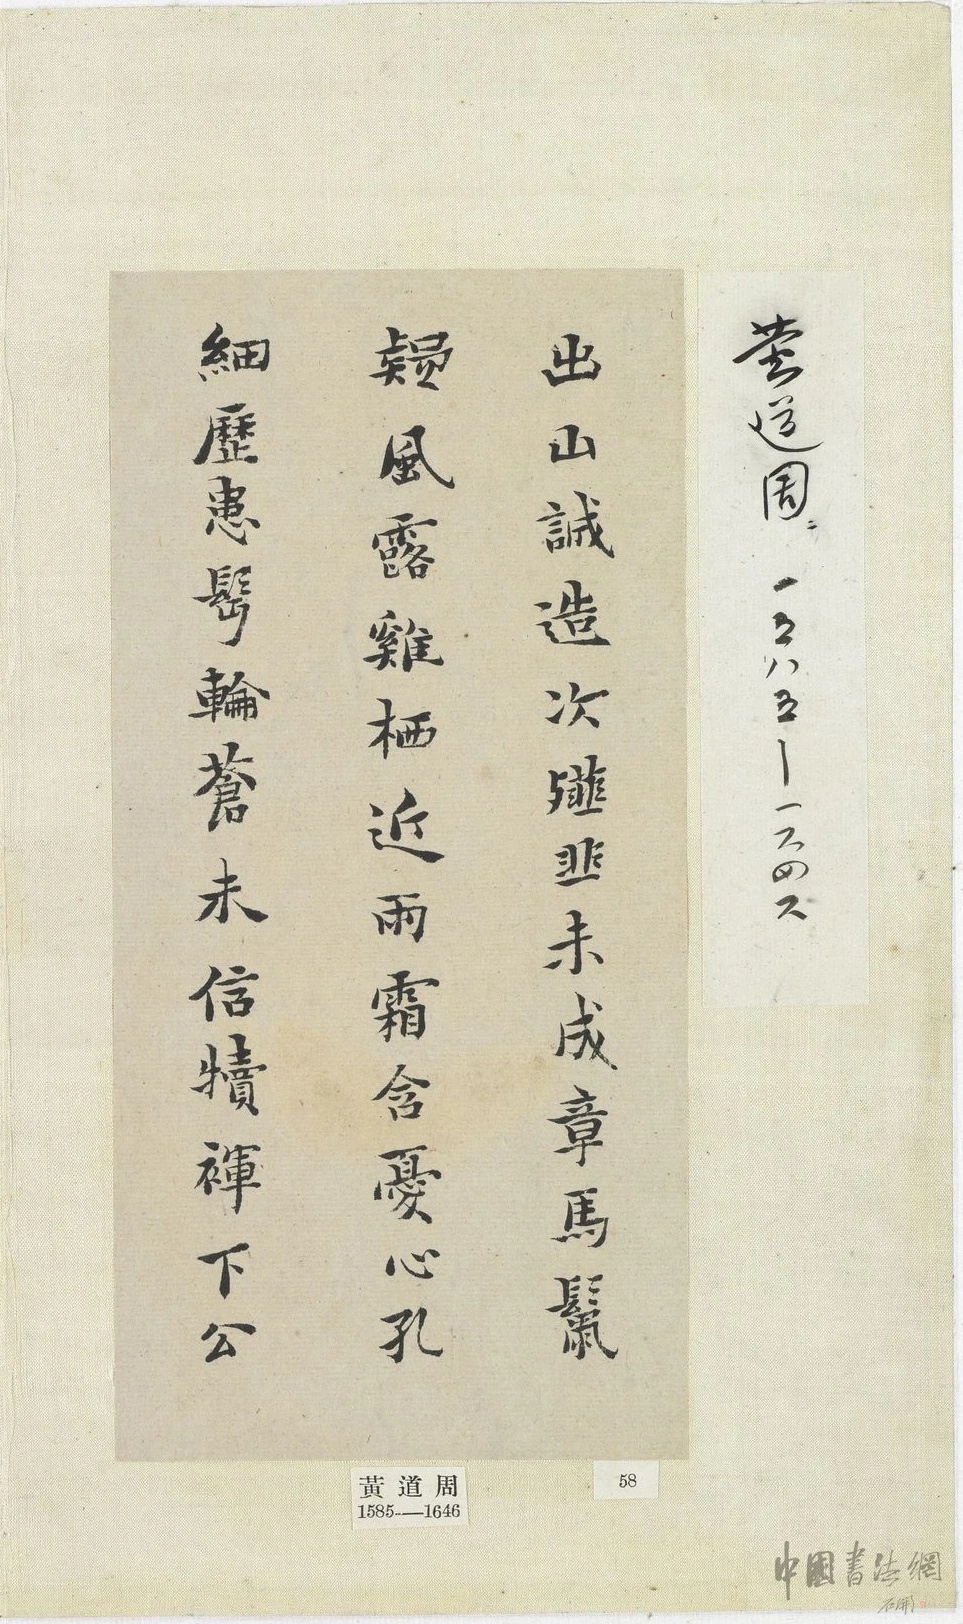 黄道周
一五八五—一六四六
出山誠造次韲韭未成章馬鬣
疑風露雞栖近雨霜含憂心孔
細歷患髩輪蒼未信犢褌下公
黃道周
1585—1646
58
中國書法網